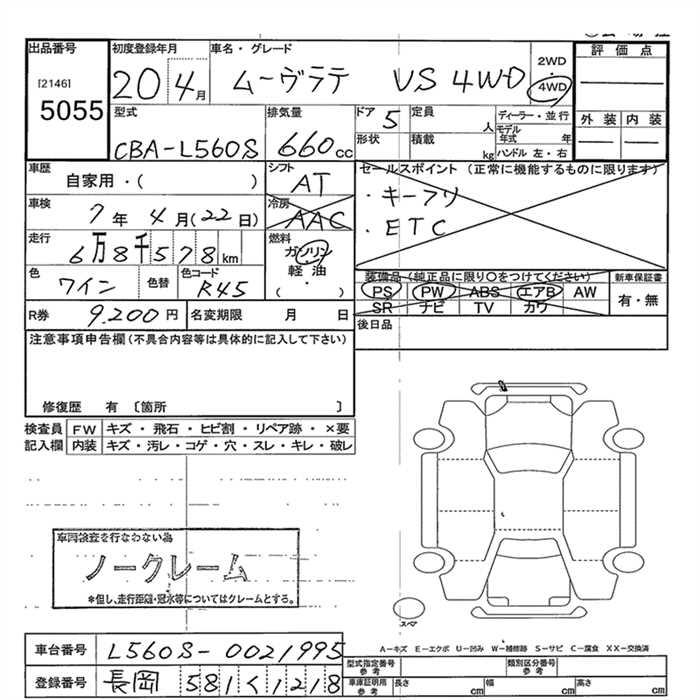 出品番号 初度登録年月 車名・グレード 2WD 評価点
[2146] 5055 20 4月 ムーヴラテ VS 4WD 4WD
型式 排気量 ドア 定員 人 ディーラー・並行 外装 内装
CBA-L560S 660cc 5 モデル年式 年
形状 積載 kg ハンドル 左・右
車歴 シフト セールスポイント (正常に機能するものに限ります)
自家用・( ) AT ・キーフリ
車検 7年 4月(22日) 冷房 AAC ・ETC
走行 6万8千578km 燃料 ガソリン・軽油・( )
色 ワイン 色替 色コード R45
装備品(純正品に限り○をつけてください) 新車保証書
PS PW ABS エアB AW 有・無
SR ナビ TV カワ
R券 9,200円 名変期限 月 日 後日品
注意事項申告欄(不具合内容等は具体的に記入して下さい)
修復歴 有 〔箇所 〕
検査員 FW キズ・飛石・ヒビ割・リペア跡・×要
記入欄 内装 キズ・汚レ・コゲ・穴・スレ・キレ・破レ
車両検査を行なわない為
ノークレーム
*但し、走行距離・冠水等についてはクレームとする。
スペア
A-キズ E-エクボ U-凹み W-補修跡 S-サビ C-腐食 XX-交換済
車台番号 L560S-0021995
登録番号 長岡 581く1218
型式指定番号 参考 類別区分番号 参考
車庫証明用 参考 長さ cm 幅 cm 高さ cm